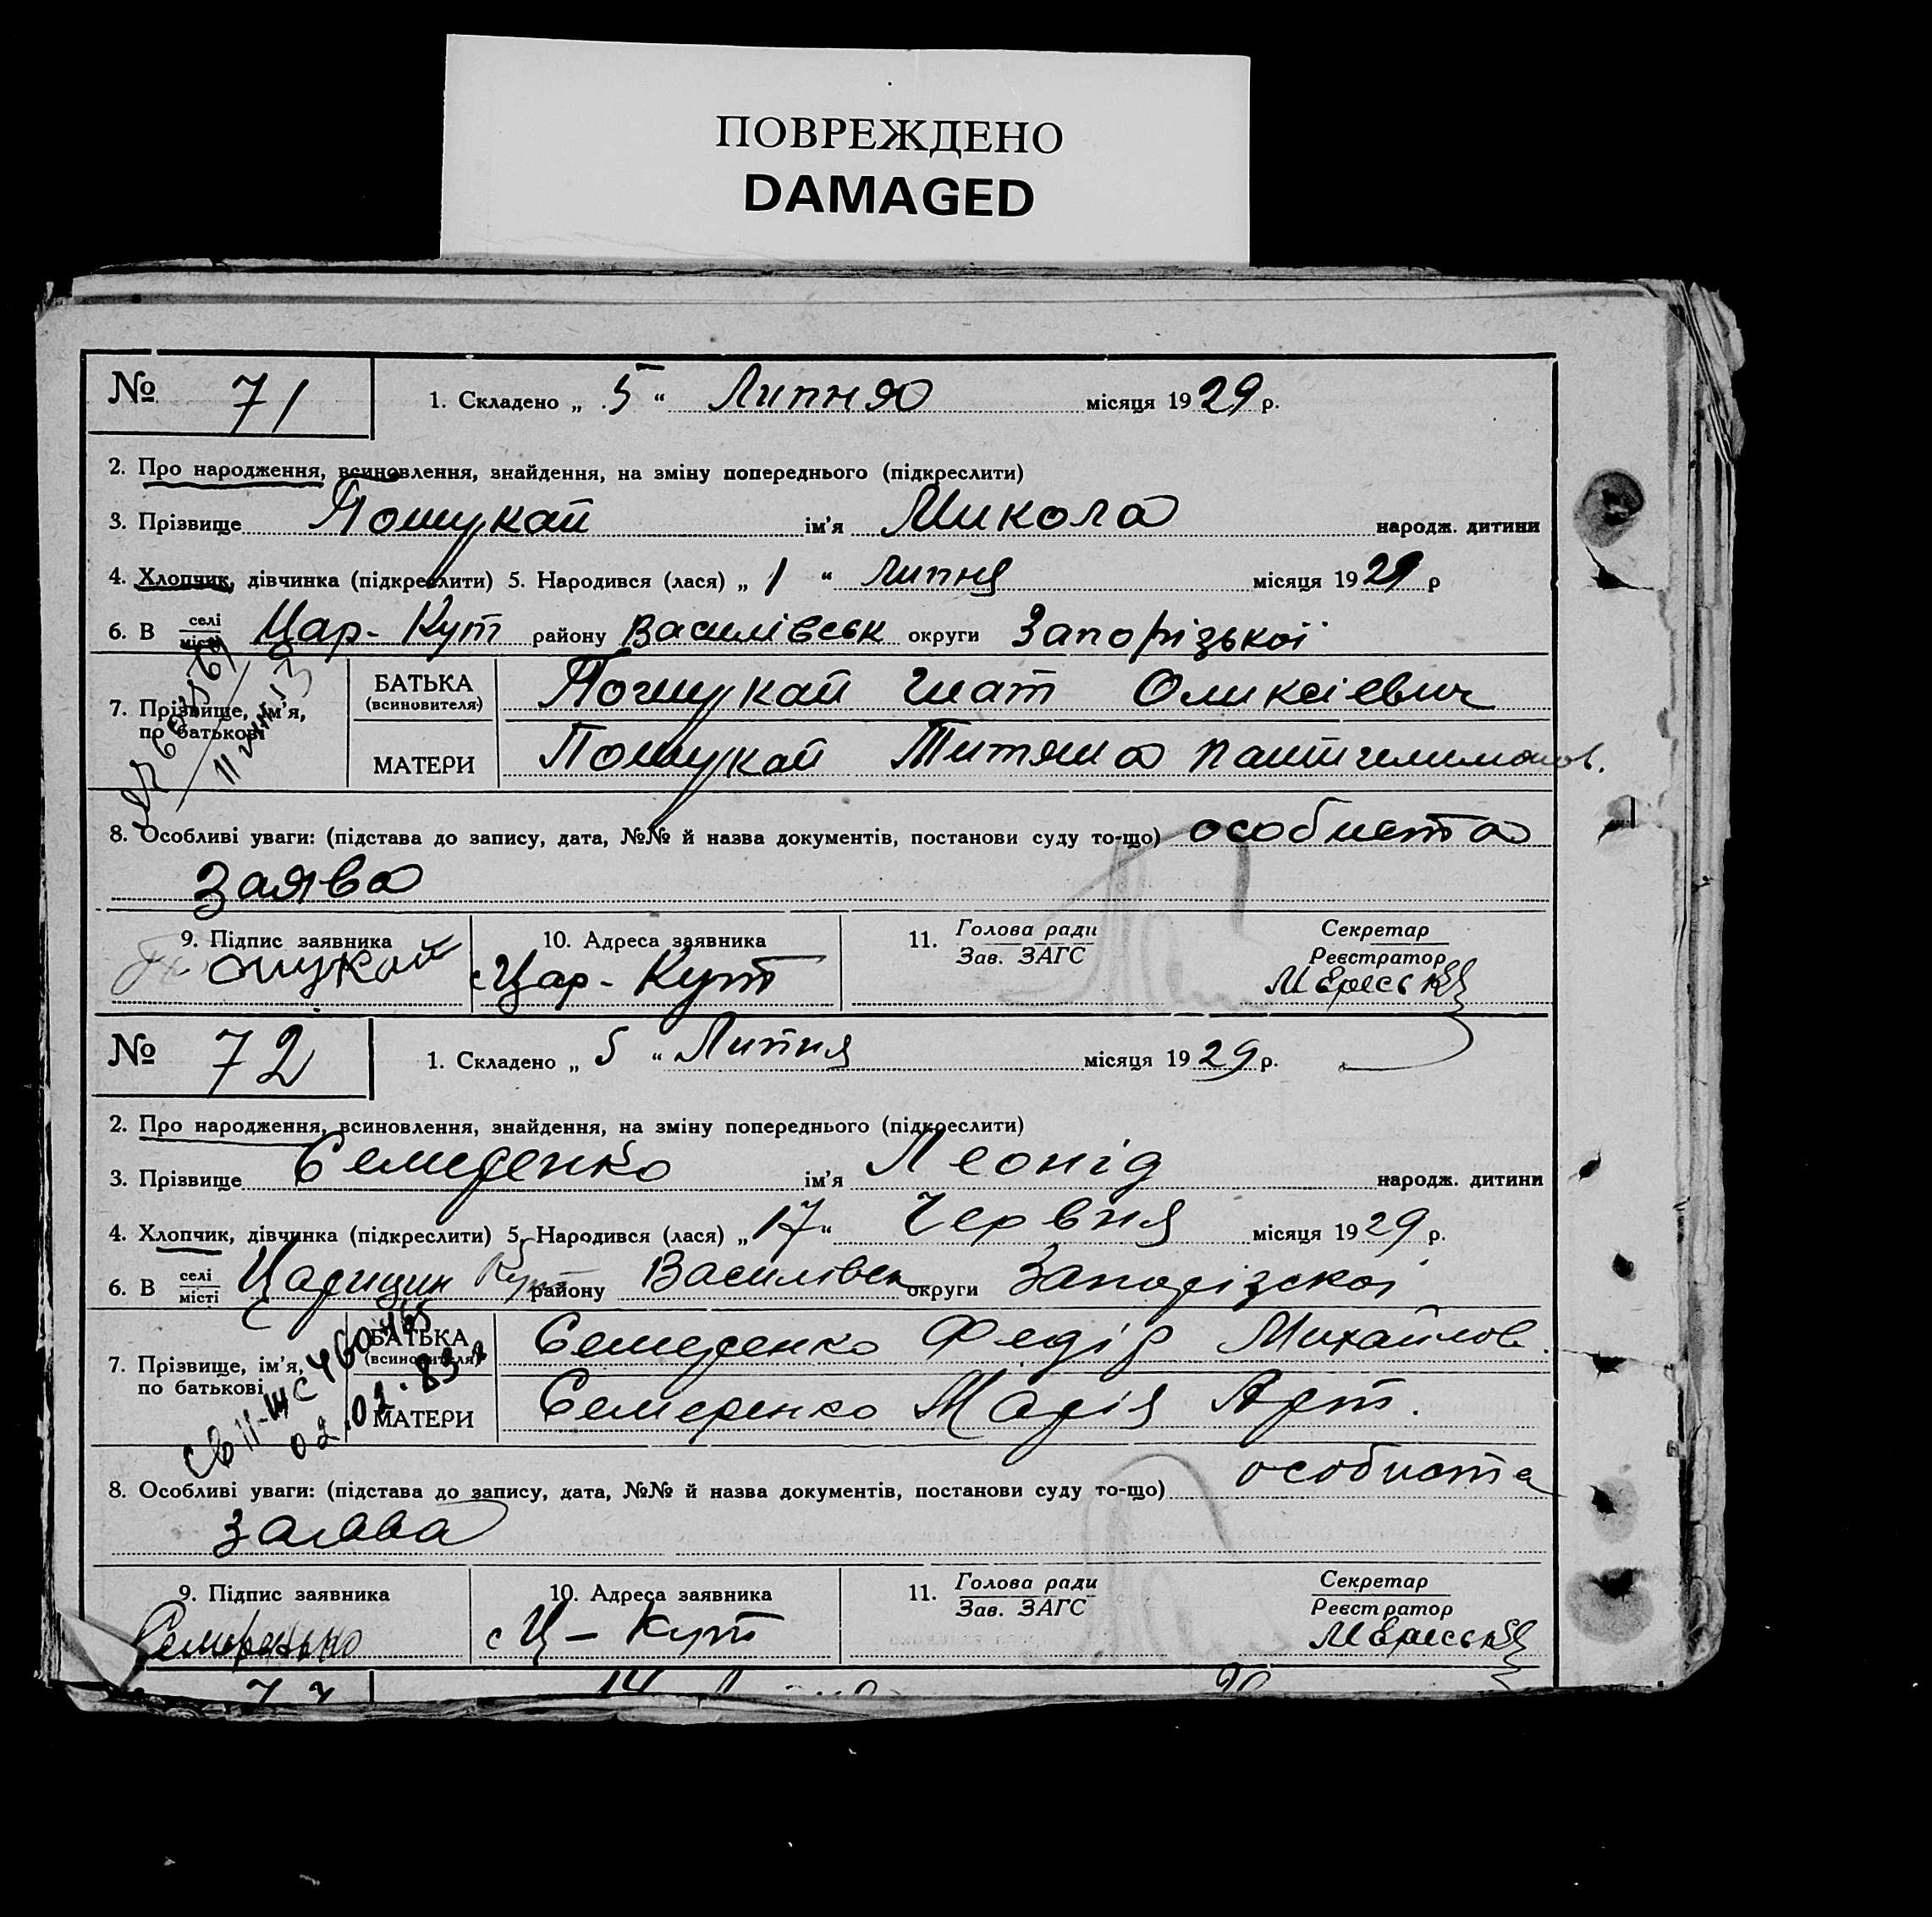 ПОВРЕЖДЕНО
DAMAGED
№ 71 1. Складено „ 5 “ Липня місяця 1929 р.
2. Про народження, всиновлення, знайдення, на зміну попереднього (підкреслити)
3. Прізвище Пошукай ім'я Микола народж. дитини
4. Хлопчик, дівчинка (підкреслити) 5. Народився (лася) „ 1 “ липня місяця 1929 р
6. В селі місті Цар- Кут району Василівськ округи Запорізької
7. Прізвище, ім'я, по батькові
БАТЬКА (всиновителя) Пошукай Оликсіевич
МАТЕРИ Пошукай Титяна
8. Особливі уваги: (підстава до запису, дата, №№ й назва документів, постанови суду то-що) особиста
заява
9. Підпис заявника 10. Адреса заявника 11. Голова ради Секретар
Зав. ЗАГС Реєстратор
Пошукай с Цар- Кут
№ 72 1. Складено „ 5 “ Липня місяця 1929 р.
2. Про народження, всиновлення, знайдення, на зміну попереднього (підкреслити)
3. Прізвище Семеренко ім'я Леонід народж. дитини
4. Хлопчик, дівчинка (підкреслити) 5. Народився (лася) „ 17 “ Червня місяця 1929 р.
6. В селі місті Царицин Кут району Василівск округи Запорізскої
7. Прізвище, ім'я, по батькові
БАТЬКА (всиновителя) Семеренко Федір Михайлов.
МАТЕРИ Семеренко Марія Арт.
8. Особливі уваги: (підстава до запису, дата, №№ й назва документів, постанови суду то-що) особиста
заява
9. Підпис заявника 10. Адреса заявника 11. Голова ради Секретар
Зав. ЗАГС Реєстратор
с Ц – Кут